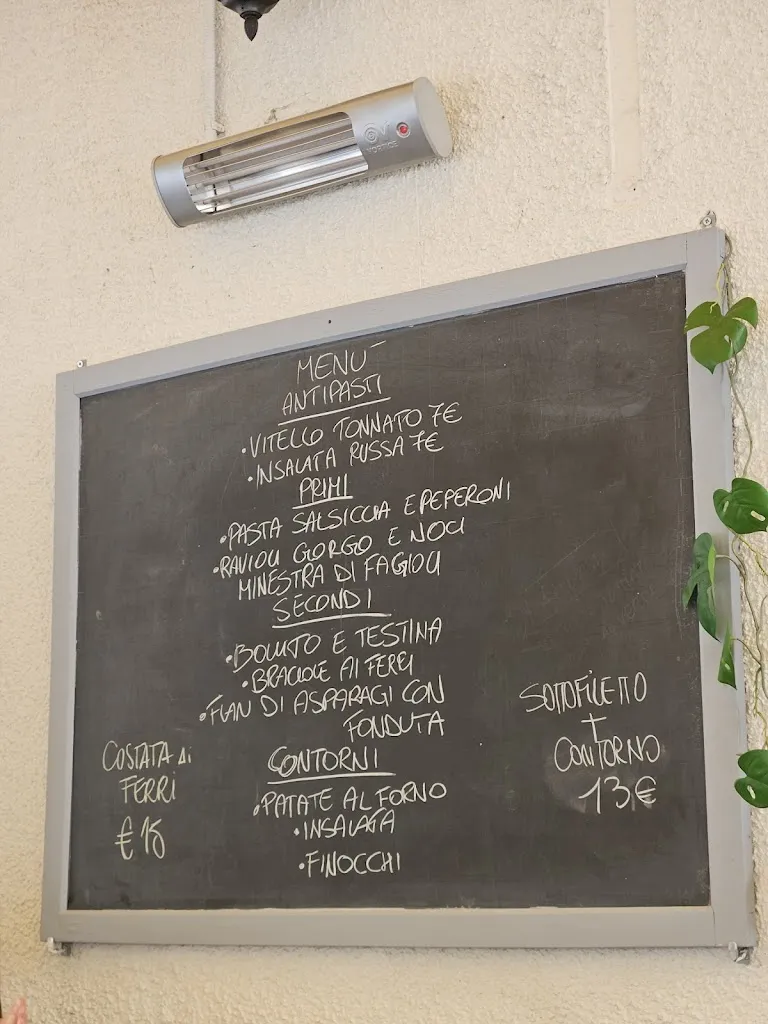 VORTICE
MENÙ
ANTIPASTI
•VITELLO TONNATO 7€
•INSALATA RUSSA 7€
PRIMI
•PASTA SALSICCIA E PEPERONI
•RAVIOLI GORGO E NOCI
MINESTRA DI FAGIOLI
SECONDI
•BOLLITO E TESTINA
•BRACIOLE AI FERRI
•FLAN DI ASPARAGI CON
FONDUTA
CONTORNI
•PATATE AL FORNO
•INSALATA
•FINOCCHI
COSTATA Ai
FERRi
€ 15
SOTTOFILETTO
+
CONTORNO
13€